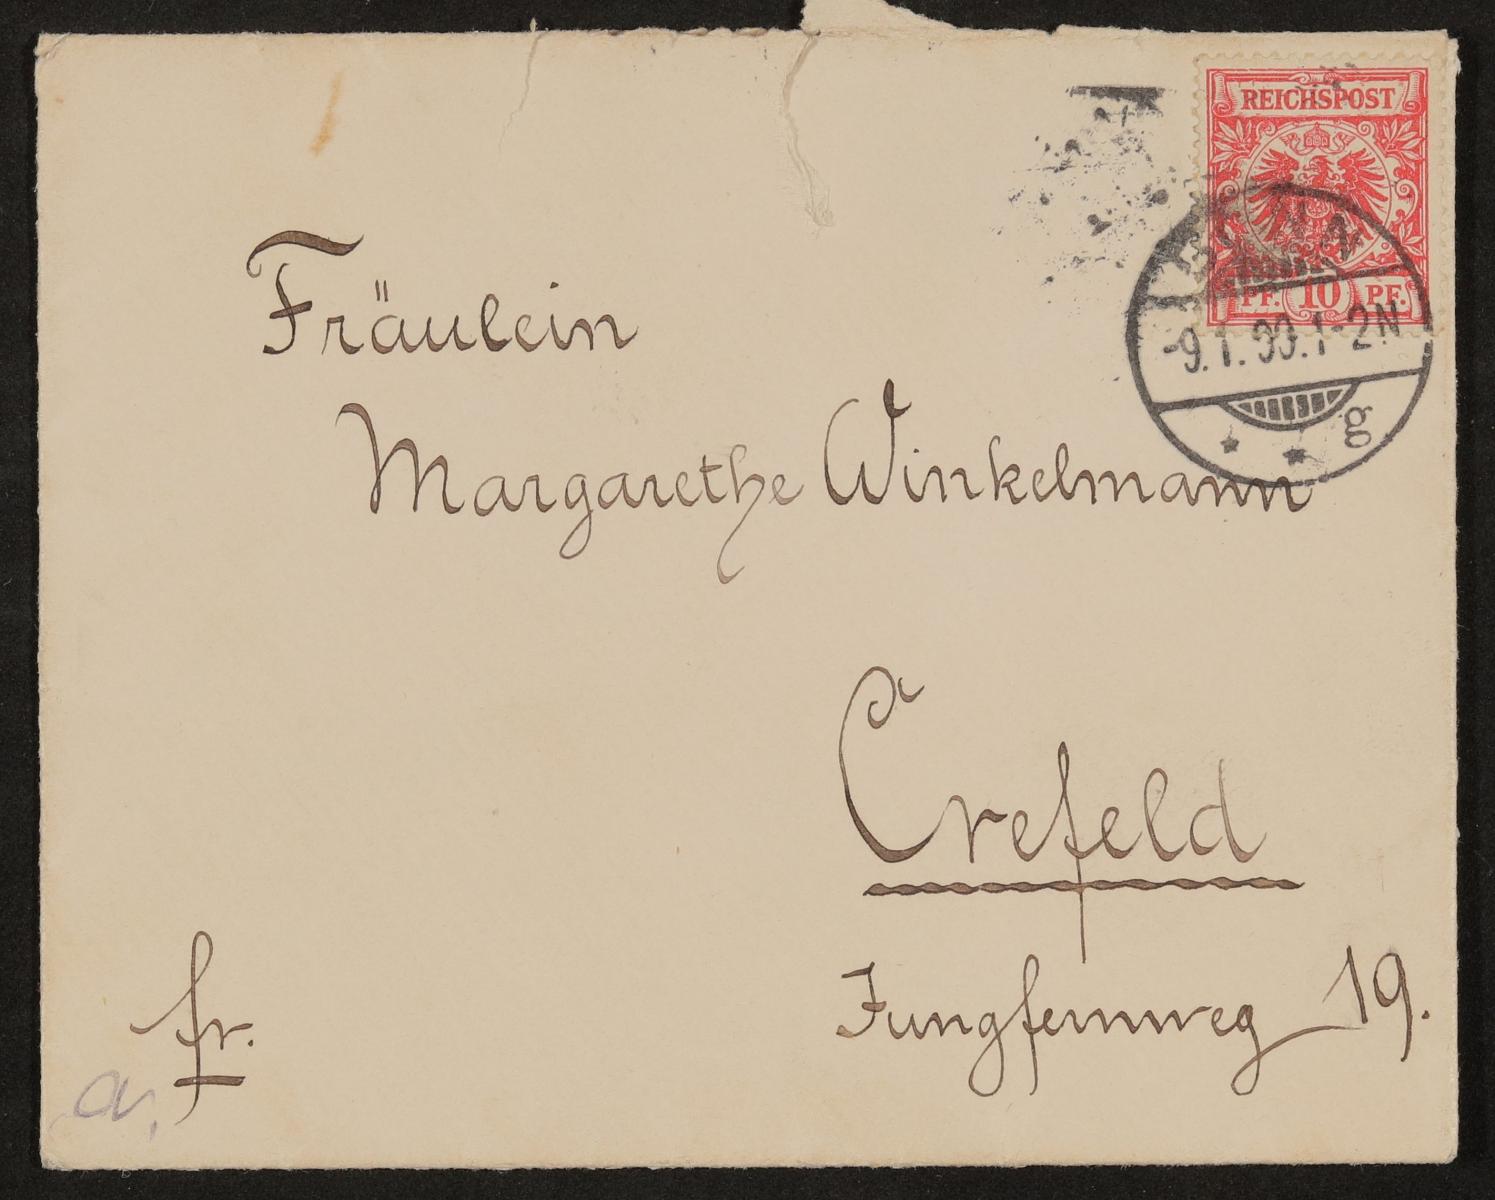 REICHSPOST
PF. 10 PF.
1-2N
g
Fräulein
Margarethe Winkelmann
Crefeld
Jungfernweg 19.
fr.